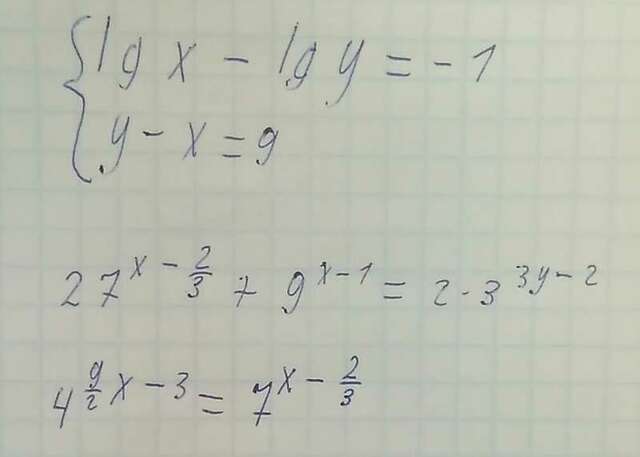 { lg x - lg y = -1
y - x = 9
27^{x - \frac{2}{3}} + 9^{x-1} = 2 · 3^{3y-2}
4^{\frac{9}{2}x - 3} = 7^{x - \frac{2}{3}}